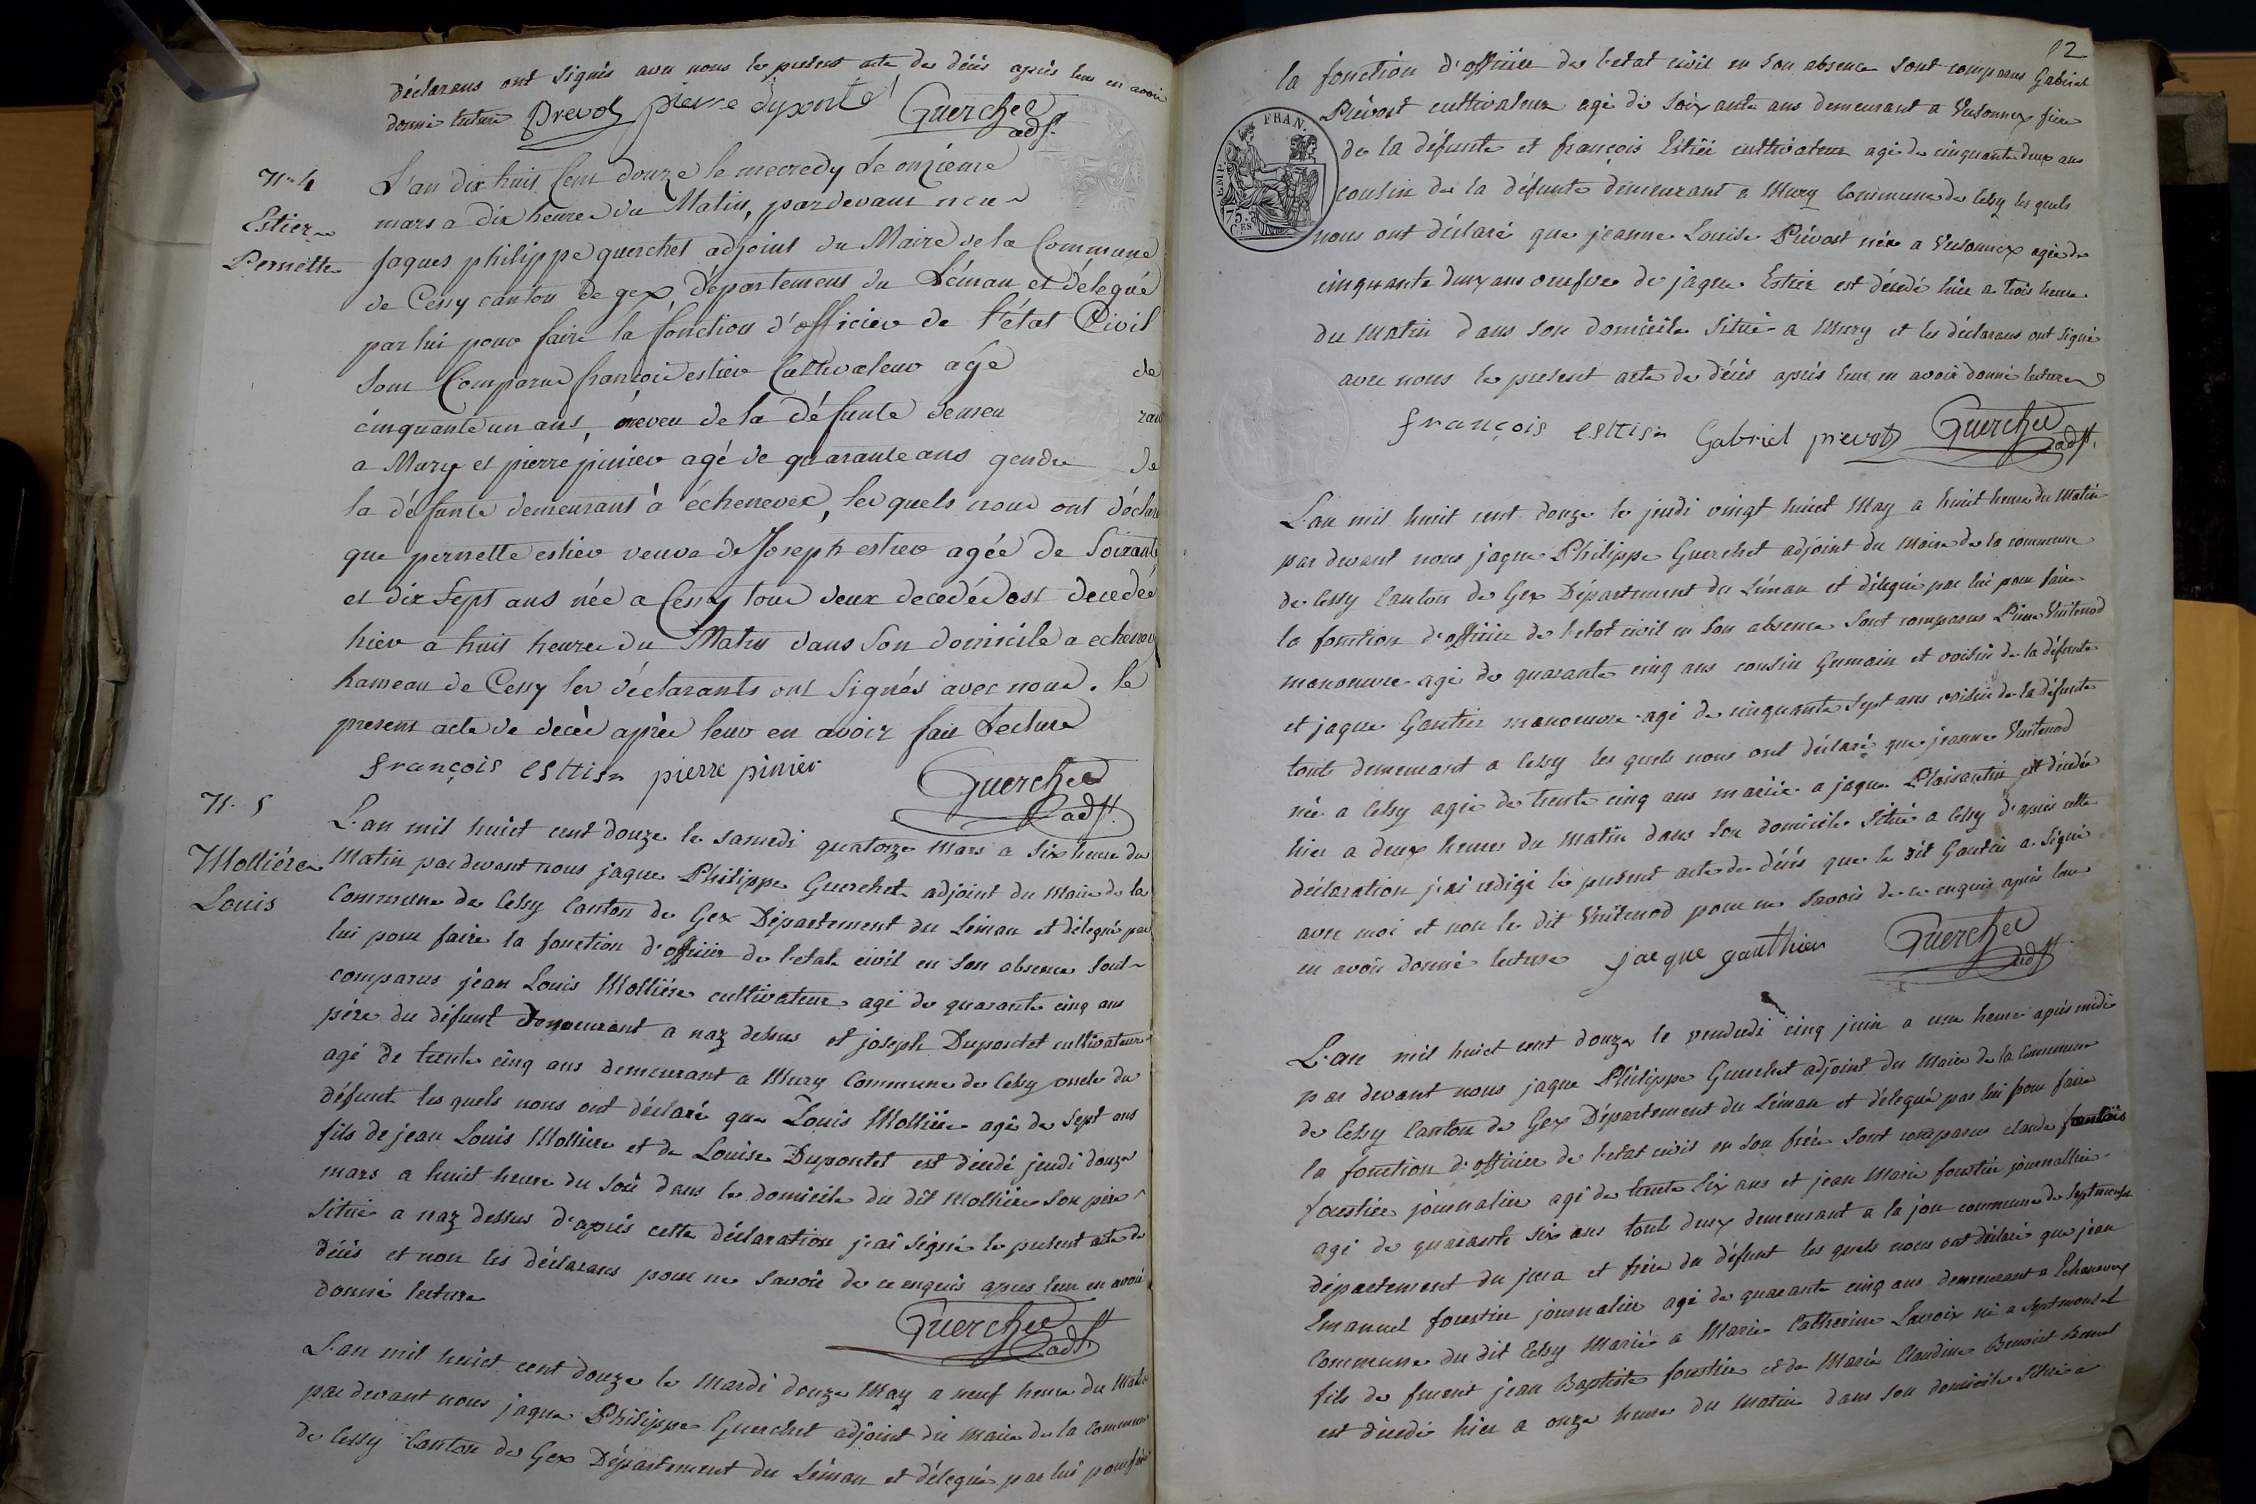 déclarans ont signés avec nous le present acte de décés après leur en avoir
donné lecture Prevot pierre Duponte Guerchet adjt.
N. 4
Estier
Pernette
L'an dix huit Cent douze le mecredy Le onzieme
mars a dix heures du Matin, pardevant nous
Jaques philippe guerchet adjoint du Maire de la Commune
de Cessy canton de gex, département du Léman et délegué
par lui pour faire la fonction d'officier de l'état Civil
sont Comparus françois estier Cultivateur agé de
cinquante un ans, neveu de la défunte demeurant
a Mury et pierre pinier agé de quarante ans gendre de
la défunte demeurant à échenevex, les quels nous ont déclaré
que pernette estier veuve de Joseph estier agée de Soixante
et dix Sept ans née a Cessy tous deux decedés est decedée
hier a huit heures du Matin dans Son domicile a echenevex
hameau de Cessy les déclarants ont Signés avec nous. le
present acte de décès après leur en avoir fait Lecture
françois esttier pierre pinier Guerchet adjt.
N. 5
Mollière
Louis
L'an mil huict cent douze le samedi quatorze mars a six heure du
Matin par devant nous jaque Philippe Guerchet adjoint du maire de la
Commune de Cessy Canton de Gex Département du Léman et délegué par
lui pour faire la fonction d'officier de l'etat civil en son absence sont
comparus jean Louis Mollière cultivateur agé de quarante cinq ans
père du défunt demeurant a naz dessus et joseph Dupontet cultivateur
agé de trente cinq ans demeurant a Mury Commune de Cessy oncle du
défunt les quels nous ont déclaré que Louis Mollière agé de sept ans
fils de jean Louis Mollière et de Louise Dupontet est décedé jeudi douze
mars a huict heure du soir dans le domicile du dit Mollière son père
situé a naz dessus d'après cette déclaration j'ai signé le present acte de
décès et non les déclarans pour ne savoir de ce enquis apres leur en avoir
donné lecture
Guerchet adjt.
L'an mil huict cent douze le mardi douze May a neuf heure du Matin
par devant nous jaque Philippe Guerchet adjoint du maire de la Commune
de Cessy Canton de Gex Département du Léman et délegué par lui pour faire
12
la fonction d'officier de l'etat civil en son absence sont comparus Gabriel
Prévost cultivateur agé de soixante ans demeurant a Vesonnex frère
de la défunte et françois Estier cultivateur agé de cinquante deux ans
cousin de la défunte demeurant a Mury Commune de Cessy les quels
nous ont déclaré que jeanne Louise Prévost née a Vesonnex agée de
cinquante deux ans veufve de jaque Estier est décedé hier a trois heure
du matin dans son domicile situé a Mury et les déclarans ont signé
avec nous le present acte de décès après leur en avoir donné lecture
françois esttier Gabriel prevot Guerchet adjt.
EMP. FRAN.
75.
C.ES
L'an mil huit cent douze le jeudi vingt huict May a huit heure du Matin
par devant nous jaque Philippe Guerchet adjoint du maire de la commune
de Cessy Canton de Gex Département du Léman et délegué par lui pour faire
la fonction d'officier de l'etat civil en son absence sont comparus Pierre Vuitenod
manoeuvre agé de quarante cinq ans cousin Germain et voisin de la défunte
et jaque Gautier manoeuvre agé de cinquante sept ans voisin de la défunte
touts demeurant a Cessy les quels nous ont déclaré que jeanne Vuitenod
née a Cessy agée de trente cinq ans mariée a jaque Plaisantin est décedée
hier a deux heures du matin dans son domicile situé a Cessy d'après cette
déclaration j'ai redigé le present acte de décès que le dit Gautier a signé
avec moi et non le dit Vuitenod pour ne savoir de ce enquis après leur
en avoir donné lecture jacque gauthier Guerchet adjt.
L'an mil huict cent douze le vendredi cinq juin a une heure après midi
par devant nous jaque Philippe Guerchet adjoint du Maire de la Commune
de Cessy Canton de Gex Département du Léman et délegué par lui pour faire
la fonction d'officier de l'etat civil en son sont comparus claude
foustier journalier agé de trente six ans et jean Marie foustier journallier
agé de quarante six ans touts deux demeurant a la jou commune de Septmoncel
département du jura et frère du défunt les quels nous ont déclaré que jean
Emanuel foustier journalier agé de quarante cinq ans demeurant a Echenevex
Commune du dit Cessy Marié a Marie Catherine Lacroix né a Septmoncel
fils de jean Baptiste foustier et de Marie Claudine Benoist
est décedé hier a onze heure du matin dans son domicile situé a